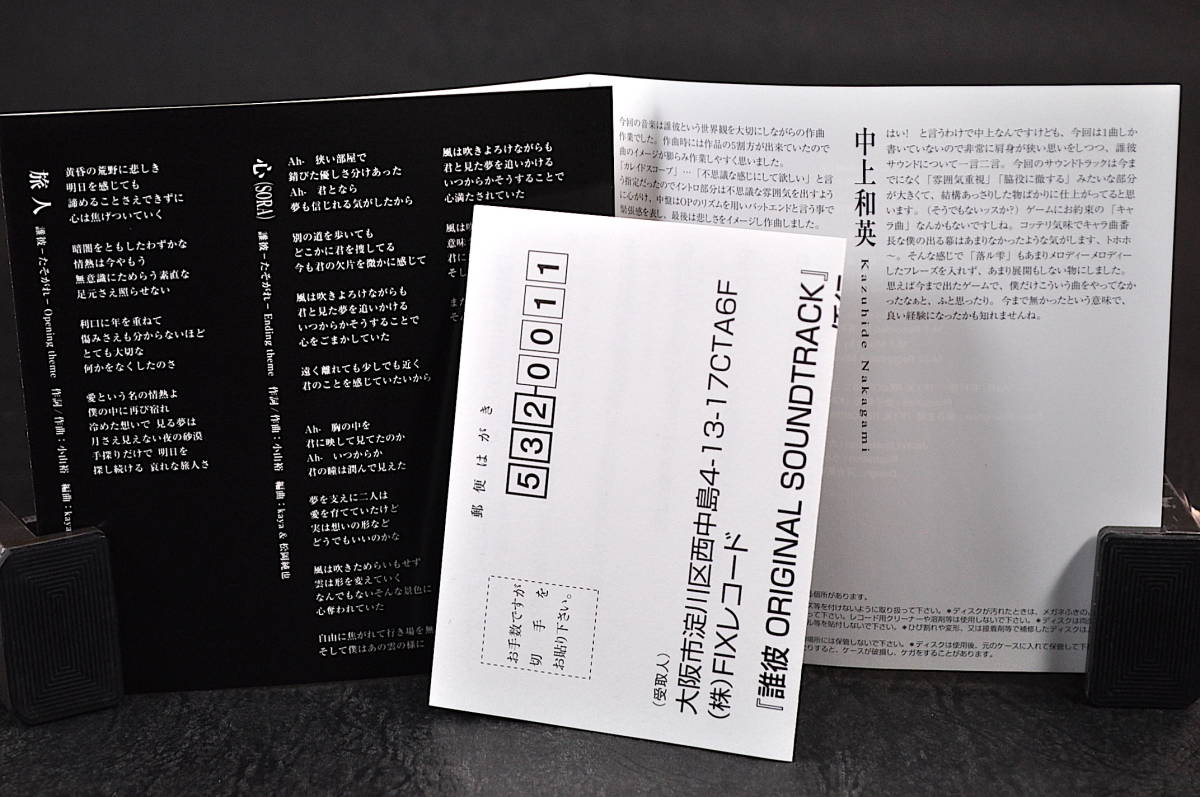 旅人
誰彼－たそがれ－ Opening theme 作詞/作曲：小山裕 編曲：kaya
黄昏の荒野に悲しき
明日を感じても
諦めることさえできずに
心は焦げついていく
暗闇をともしたわずかな
情熱は今やもう
無意識にためらう素直な
足元さえ照らせない
利口に年を重ねて
傷みさえも分からないほど
とても大切な
何かをなくしたのさ
愛という名の情熱よ
僕の中に再び宿れ
冷めた想いで 見る夢は
月さえ見えない夜の砂漠
手探りだけで 明日を
探し続ける 哀れな旅人さ
心(SORA)
誰彼－たそがれ－ Ending theme 作詞/作曲：小山裕 編曲：kaya & 松岡純也
Ah- 狭い部屋で
錆びた優しさ分けあった
Ah- 君となら
夢も信じれる気がしたから
別の道を歩いても
どこかに君を捜してる
今も君の欠片を微かに感じて
風は吹きよろけながらも
君と見た夢を追いかける
いつからかそうすることで
心をごまかしていた
遠く離れても少しでも近く
君のことを感じていたいから
Ah- 胸の中を
君に映して見てたのか
Ah- いつからか
君の瞳は潤んで見えた
夢を支えに二人は
愛を育てていたけど
実は想いの形など
どうでもいいのかな
風は吹きためらいもせず
雲は形を変えていく
なんでもないそんな景色に
心奪われていた
自由に焦がれて行き場を無
そして僕はあの雲の様に
風は吹きよろけながらも
君と見た夢を追いかける
いつからかそうすることで
心満たされていた
風は吹
意味
君に
そし
また
そん
今回の音楽は誰彼という世界観を大切にしながらの作曲
作業でした。作曲時には作品の5割方が出来ていたので
曲のイメージが膨らみ作業しやすく思いました。
「カレイドスコープ」…「不思議な感じにして欲しい」と言
う指定だったのでイントロ部分は不思議な雰囲気を出すよう
に心がけ、中盤はOPのリズムを用いバットエンドと言う事で
緊張感を表し、最後は悲しさをイメージし作曲しました。
中上和英 Kazuhide Nakagami
はい! と言うわけで中上なんですけども、今回は1曲しか
書いていないので非常に肩身が狭い思いをしつつ、誰彼
サウンドについて一言二言。今回のサウンドトラックは今ま
でになく「雰囲気重視」「脇役に徹する」みたいな部分
が大きくて、結構あっさりした物ばかりに仕上がってると思
います。(そうでもないッスか?)ゲームにお約束の「キャ
ラ曲」なんかもないですしね。コッテリ気味でキャラ曲番
長な僕の出る幕はあまりなかったような気がします、トホホ
～。そんな感じで「落ル雫」もあまりメロディーメロディー
したフレーズを入れず、あまり展開もしない物にしました。
思えば今まで出たゲームで、僕だけこういう曲をやってなか
ったなぁと、ふと思ったり。今まで無かったという意味で、
良い経験になったかも知れませんね。
郵便はがき
532-0011
お手数ですが
切手を
お貼り下さい。
(受取人)
大阪市淀川区西中島4-13-17CTA6F
(株)FIXレコード
『誰彼 ORIGINAL SOUNDTRACK』
個所があります。
ズ等を付けないように取り扱って下さい。●ディスクが汚れたときは、メガネふきの
って下さい。レコード用クリーナーや溶剤等は使用しないで下さい。●ディスクは両
ル等を貼付しないで下さい。●ひび割れや変形、又は接着剤等で補修したディスクは、
場所には保管しないで下さい。●ディスクは使用後、元のケースに入れて保管して下
りすると、ケースが破損し、ケガをすることがあります。